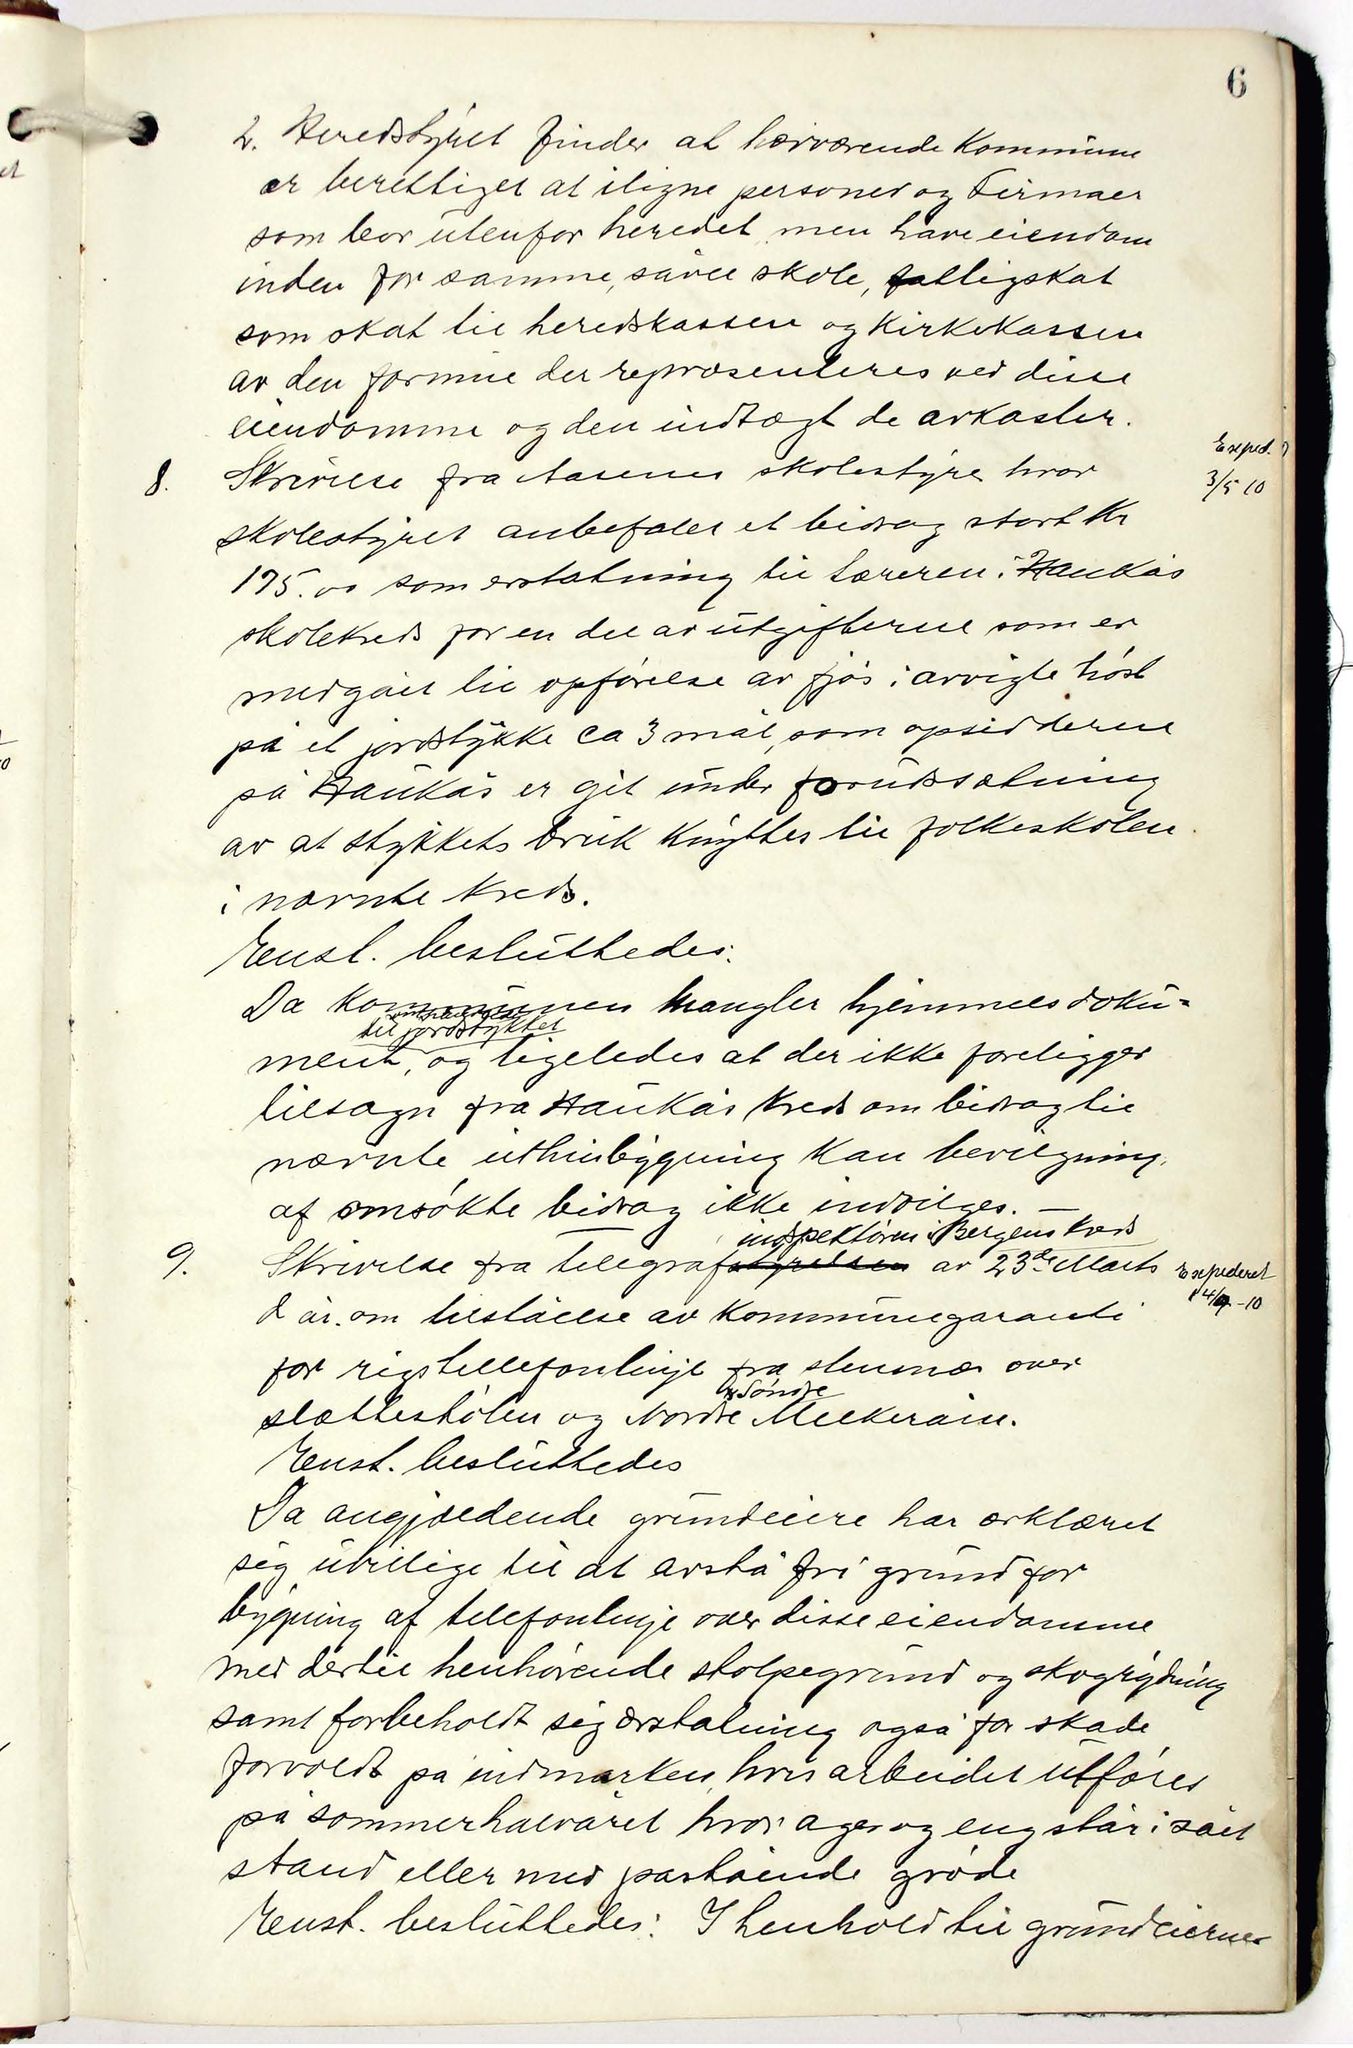 6
2. Heredstyret finder at herværende Kommune
er berettiget at iligne personer og Firmaer
som bor utenfor heredet, men have eiendom
inden for samme, såvel skole, fattigskat
som skat til heredskassen og Kirkekassen
av den formue der repræsenteres ved disse
eiendomme og den indtægt de avkaster.
Exped.
3/5 10
8. Skrivelse fra Aasenes skolestyre hvor
skolestyret anbefaler et bidrag stort Kr
175.00 som erstatning til Læreren i Haukås
skolekreds for en del av utgifterne som er
medgået til opførelse av fjøs i avvigte høst
på et jordstykke ca 3 mål, som opsidderne
på Haukås er git under forudsætning
av at stykkets bruk knyttes til folkeskolen
i nævnte kreds.
Enst. besluttedes:
Da Kommunen mangler hjemmelsdoku-
til jordstykket
ment, og ligeledes at der ikke foreligger
tilsagn fra Haukås Kreds om bidrag til
nævnte uthusbygning kan bevilgning
af omsøkte bidrag ikke indvilges. —
inspektøren i Bergens Kreds
9. Skrivelse fra telegrafstyrelsen av 23de Marts
Expederet
14/4-10
d år. om tilståelse av Kommunegaranti
for rigstellefonlinje fra stensnæs over
& Söndre
slættestølen og Nordre Mækeråsen.
Enst. besluttedes
Da angjældende grundeiere har erklæret
sig uvillige til at avstå fri grund for
bygning af telefonlinje over disse eiendomme
med dertil henhørende stolpegrund og skogrydning
samt forbeholdt sig erstatning også for skade
forvoldt på indmarken, hvis arbeidet utføres
på sommerhalvåret hvor ager og eng står i sået
stand eller med påstående grøde
Enst. besluttedes: I henhold til grundeiernes